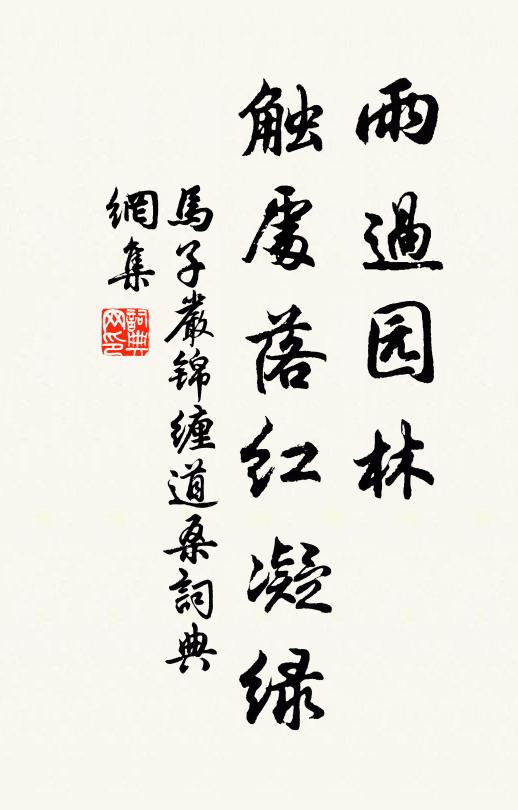 雨過园林
触處落红凝绿
馬子嚴锦缠道桑詞典
網集
詞典网印